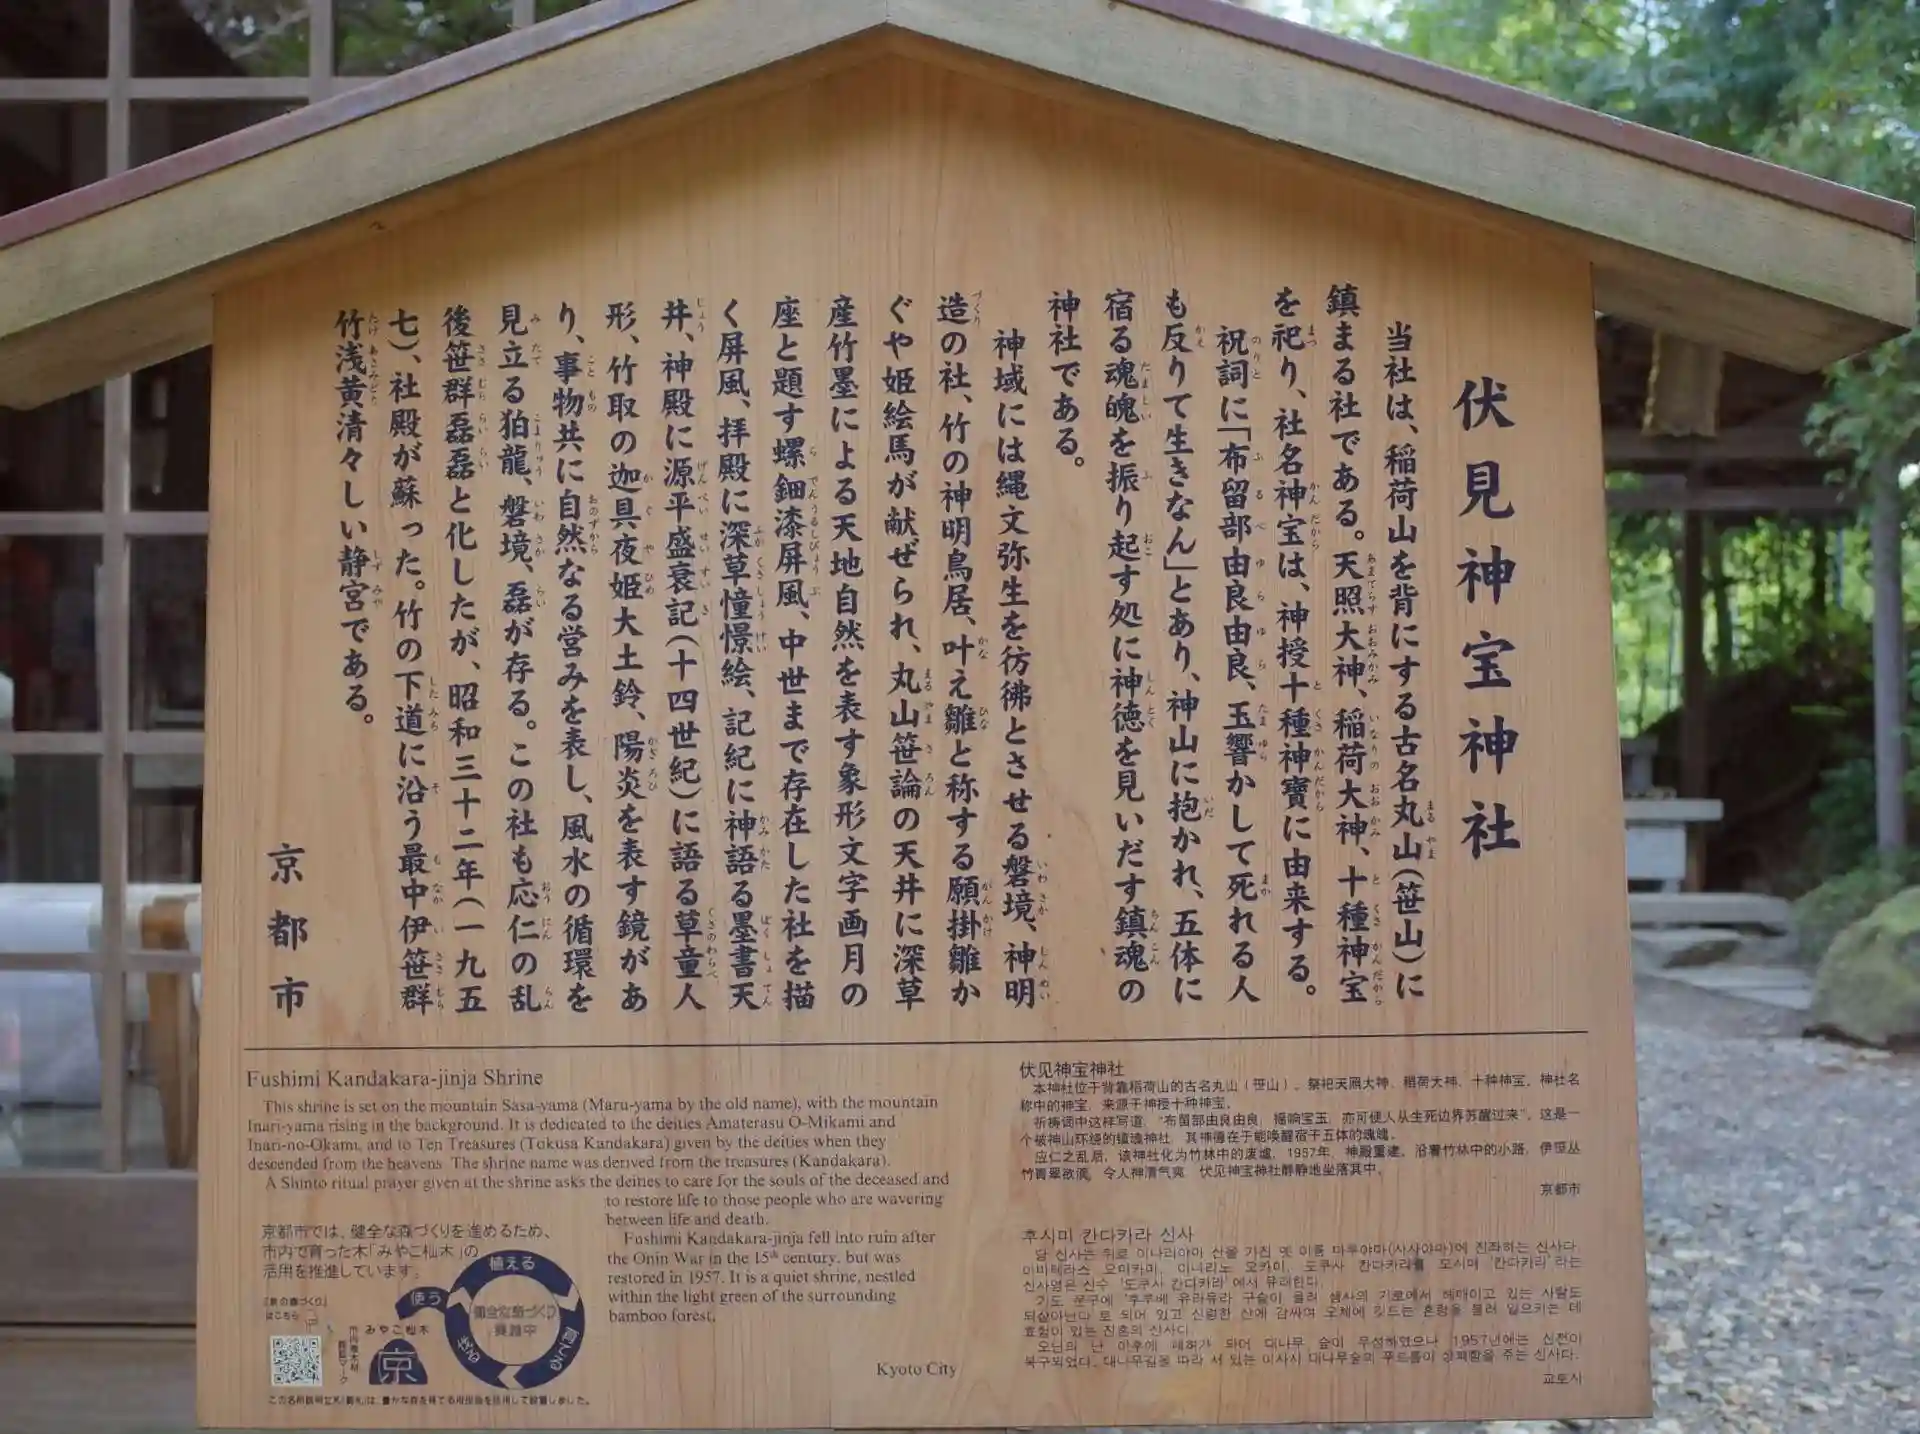 伏見神宝神社
当社は、稲荷山を背にする古名丸山(笹山)に
鎮まる社である。天照大神、稲荷大神、十種神宝
を祀り、社名神宝は、神授十種神寶に由来する。
祝詞に「布留部由良由良、玉響かして死れる人
も反りて生きなん」とあり、神山に抱かれ、五体に
宿る魂魄を振り起す処に神徳を見いだす鎮魂の
神社である。
神域には縄文弥生を彷彿とさせる磐境、神明
造の社、竹の神明鳥居、叶え雛と称する願掛雛か
ぐや姫絵馬が献ぜられ、丸山笹論の天井に深草
産竹墨による天地自然を表す象形文字画月の
座と題す螺鈿漆屏風、中世まで存在した社を描
く屏風、拝殿に深草憧憬絵、記紀に神語る墨書天
井、神殿に源平盛衰記(十四世紀)に語る草童人
形、竹取の迦具夜姫大土鈴、陽炎を表す鏡があ
り、事物共に自然なる営みを表し、風水の循環を
見立る狛龍、磐境、磊が存る。この社も応仁の乱
後笹群磊磊と化したが、昭和三十二年(一九五
七)、社殿が蘇った。竹の下道に沿う最中伊笹群
竹浅黄清々しい静宮である。
京都市
Fushimi Kandakara-jinja Shrine
This shrine is set on the mountain Sasa-yama (Maru-yama by the old name), with the mountain
Inari-yama rising in the background. It is dedicated to the deities Amaterasu O-Mikami and
Inari-no-Okami, and to Ten Treasures (Tokusa Kandakara) given by the deities when they
descended from the heavens. The shrine name was derived from the treasures (Kandakara).
A Shinto ritual prayer given at the shrine asks the deities to care for the souls of the deceased and
to restore life to those people who are wavering
between life and death.
Fushimi Kandakara-jinja fell into ruin after
the Onin War in the 15th century, but was
restored in 1957. It is a quiet shrine, nestled
within the light green of the surrounding
bamboo forest.
Kyoto City
京都市では、健全な森づくりを進めるため、
市内で育った木「みやこ杣木」の
活用を推進しています。
『京の森づくり』
はこちら
みやこ杣木
京
植える
育てる
使う
伏见神宝神社
本神社位于背靠稻荷山的古名丸山(笹山)。祭祀天照大神、稻荷大神、十种神宝。神社名
称中的神宝，来源于神授十种神宝。
祈祷词中这样写道，“布留部由良由良，摇响宝玉，亦可使人从生死边界苏醒过来”。这是一
个被神山环绕的镇魂神社，其神德在于能唤醒宿于五体的魂魄。
应仁之乱后，该神社化为竹林中的废墟，1957年，神殿重建。沿着竹林中的小路，伊笹丛
竹青翠欲滴，令人神清气爽，伏见神宝神社静静地坐落其中。
京都市
후시미 칸다카라 신사
당 신사는 뒤로 이나리야마 산을 가진 옛 이름 마루야마(사사야마)에 진좌하는 신사다.
교토시